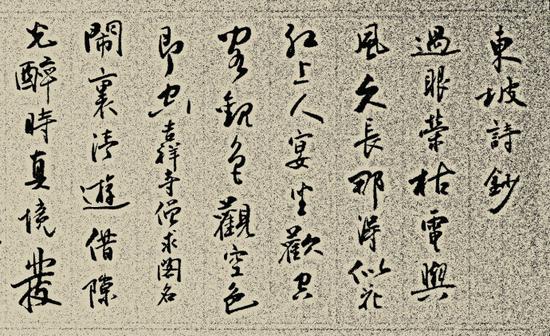 東坡詩鈔
過眼榮枯電與
風久長那得似花
紅上人宴坐觀空
閣觀色觀空色
即空吉祥寺僧求閣名
鬧裏清遊借隙
光醉時真境發